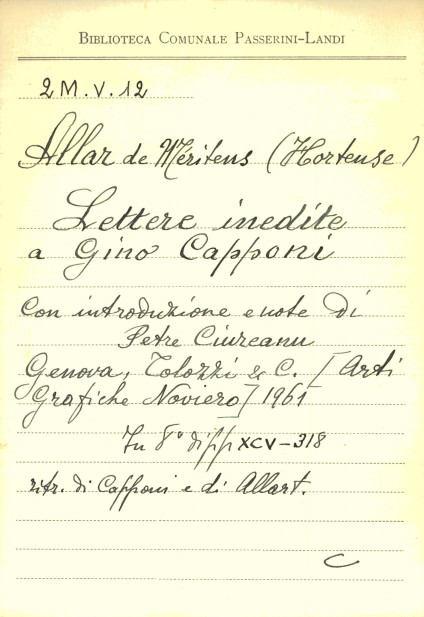 BIBLIOTECA COMUNALE PASSERINI-LANDI
2 M. V. 12
Allar de Méritens (Hortense)
Lettere inedite
a Gino Capponi
con introduzione e note di
Petre Ciureanu
Genova, Tolozzi & C. [Arti
Grafiche Noviero] 1961
In 8° di pp XCV-318
ritr. di Capponi e di Allart.
C